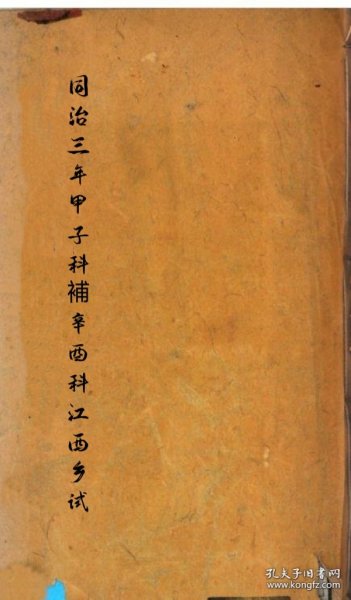 同治三年甲子科補辛酉科江西乡试
孔夫子旧书网
kongfz.com